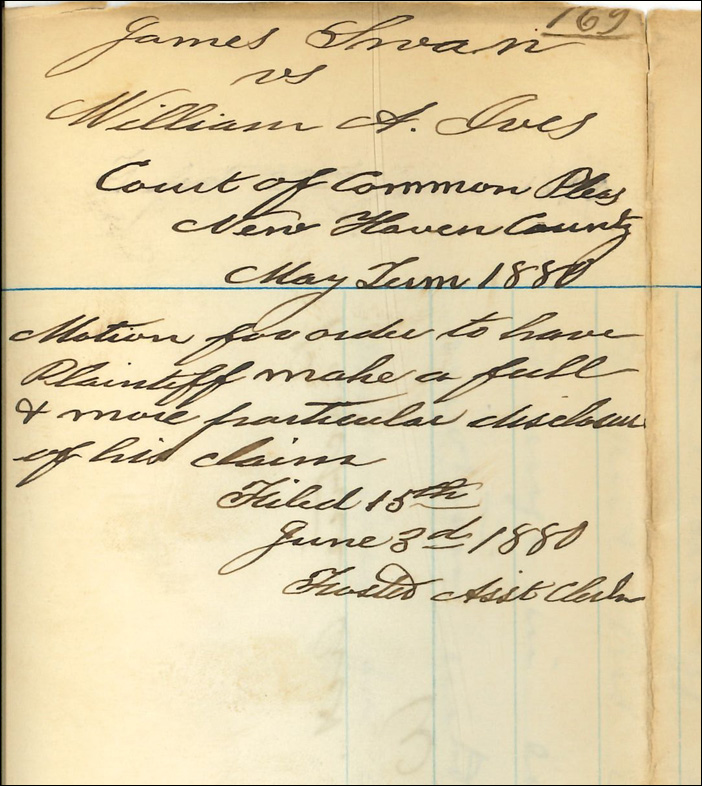 169
James Swan
vs
William A. Ives
Court of Common Pleas
New Haven County
May Term 1880
Motion for order to have
Plaintiff make a full
& more particular disclosure
of his claim
Filed 15th
June 3d 1880
Asst Clerk